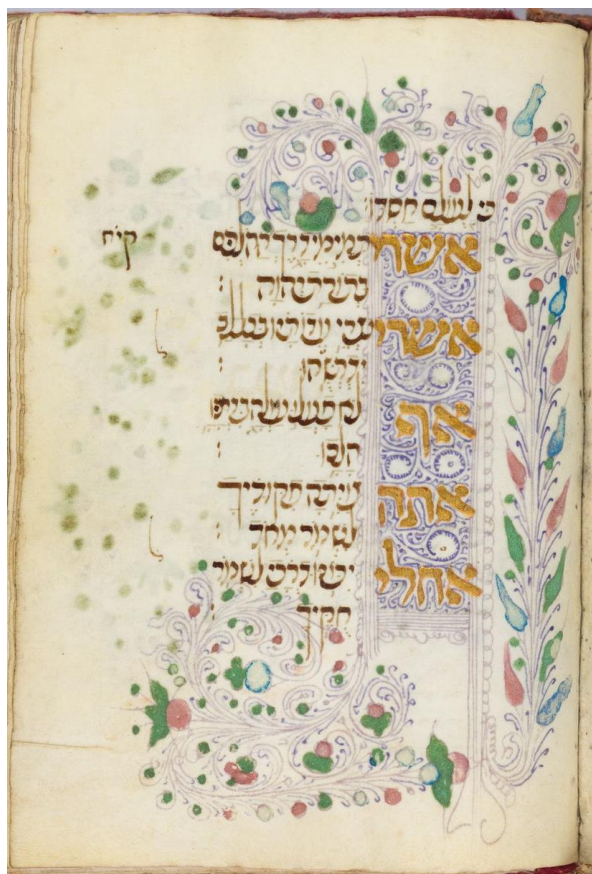 כי לעולם חסדו:
קיח
אשרי תמימי דרך ההלכים
בתורת יהוה:
אשרי נצרי עדותיו בכל לב
ידרשוהו:
אף לא פעלו עולה בדרכיו
הלכו:
אתה צויתה פקודיך
לשמר מאד:
אחלי יכנו דרכי לשמר
חקיך: